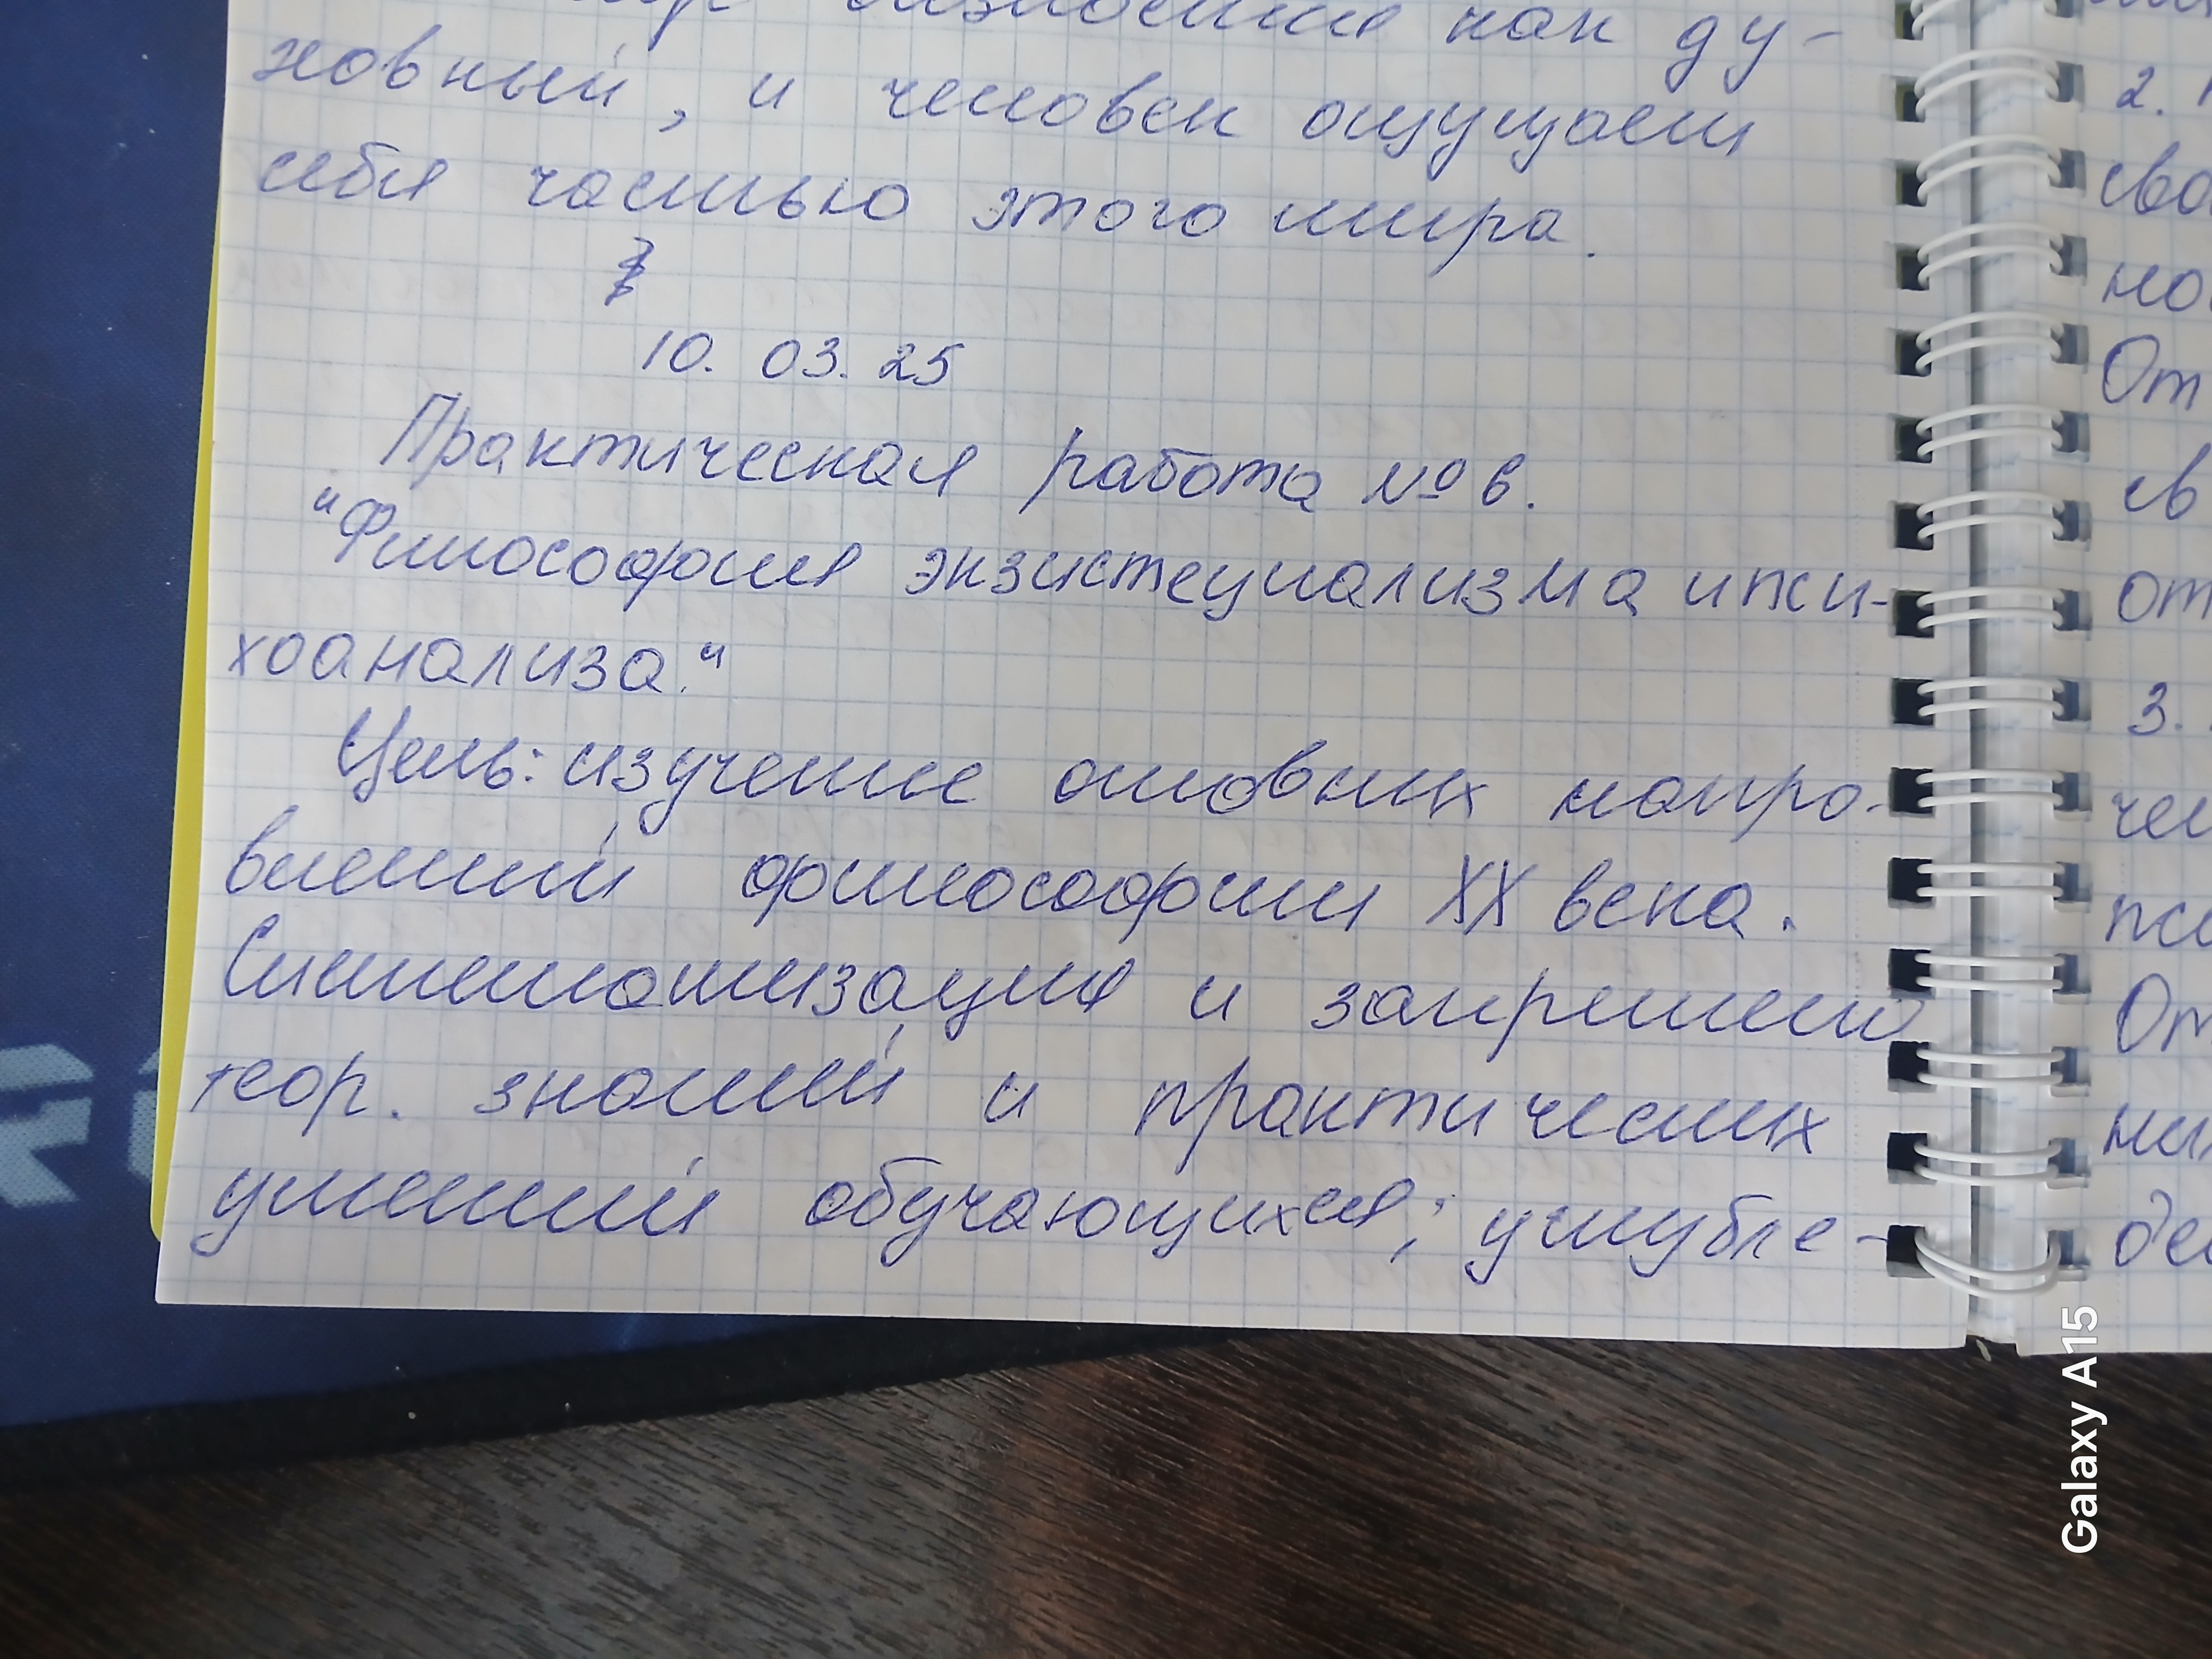 как ду-
ховный, и человек ощущает
себя частью этого мира.
10. 03. 25
Практическая работа № 6.
"Философия экзистециализма и пси-
хоанализа."
Цель: изучение основных напра-
влений философии XX века.
Систематизация и закрепление
теор. знаний и практических
умений обучающихся; углубле-
2.
сво
но
От
св
от
3.
чел
пси
От
них
дей
Galaxy A15